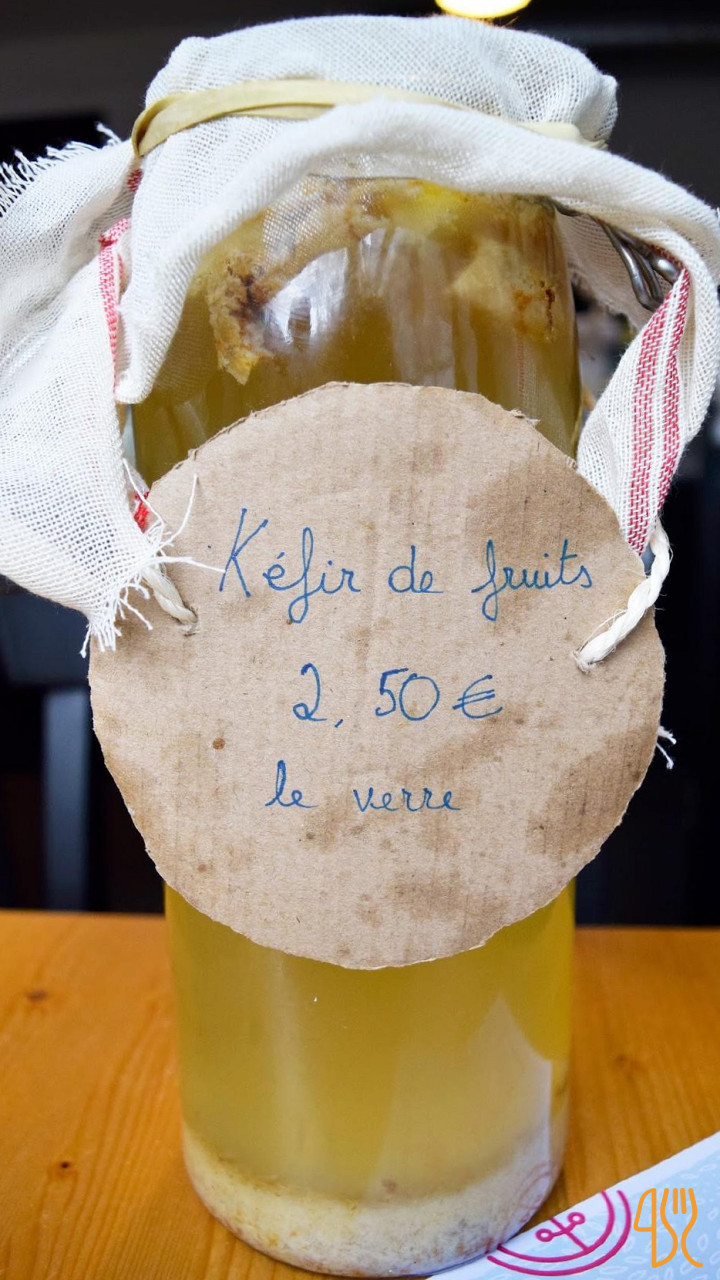 Kéfir de fruits
2,50 €
le verre